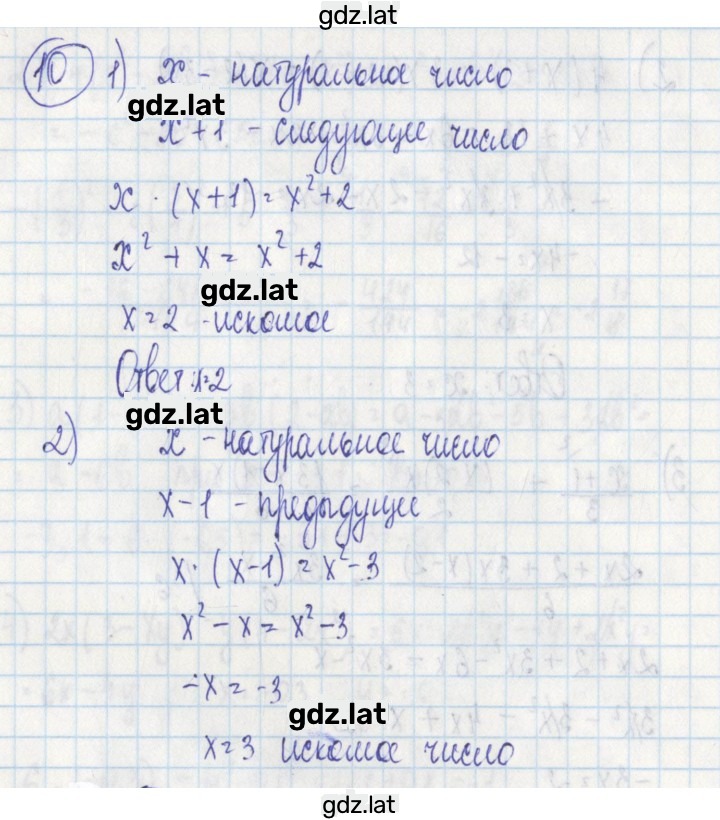 gdz.lat
10 1) x - натуральное число
gdz.lat
x+1 - следующее число
x · (x+1) = x²+2
x² + x = x²+2
gdz.lat
x=2 - искомое
Ответ: x=2
gdz.lat
2) x - натуральное число
x-1 - предыдущее
x · (x-1) = x²-3
x² - x = x²-3
-x = -3
gdz.lat
x=3 искомое число
gdz.lat